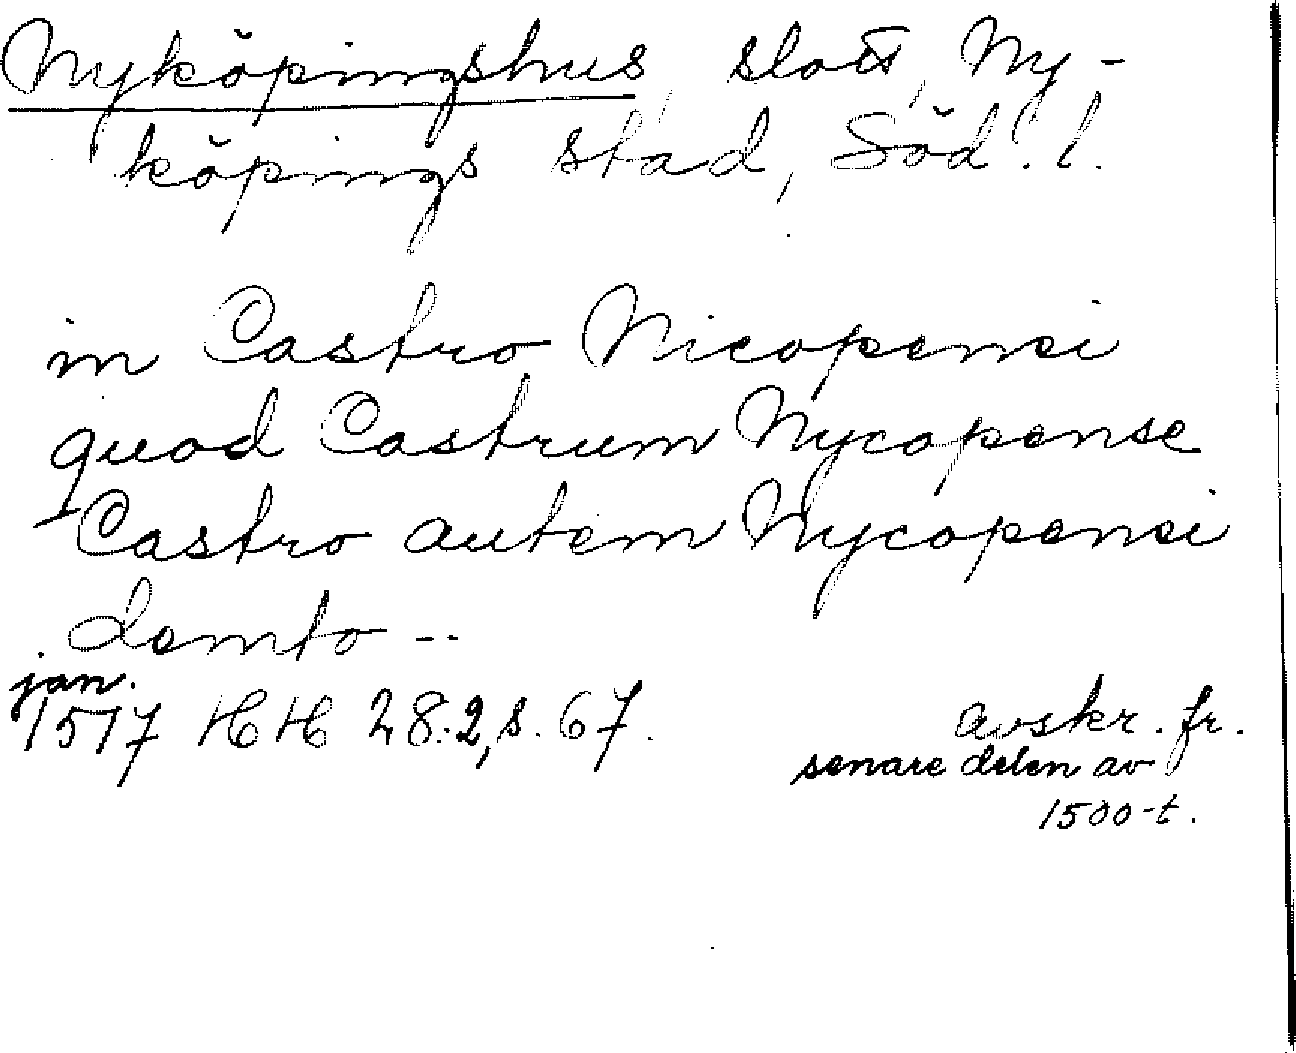 Nyköpingshus, slott, Ny-
köpings stad, Söd. l.
in Castro Nicopensi
quod Castrum Nycopense
Castro autem Nycopensi
demto --
jan.
1517 HH 28:2, s. 67.
avskr. fr.
senare delen av
1500-t.